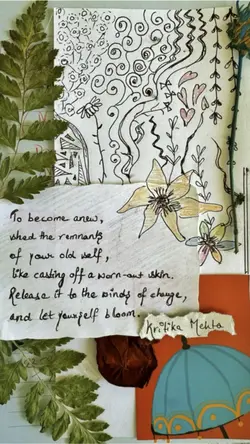 To become anew,
shed the remnants
of your old self,
like casting off a worn-out skin.
Release it to the winds of change,
and let yourself bloom.
Kritika Mehta